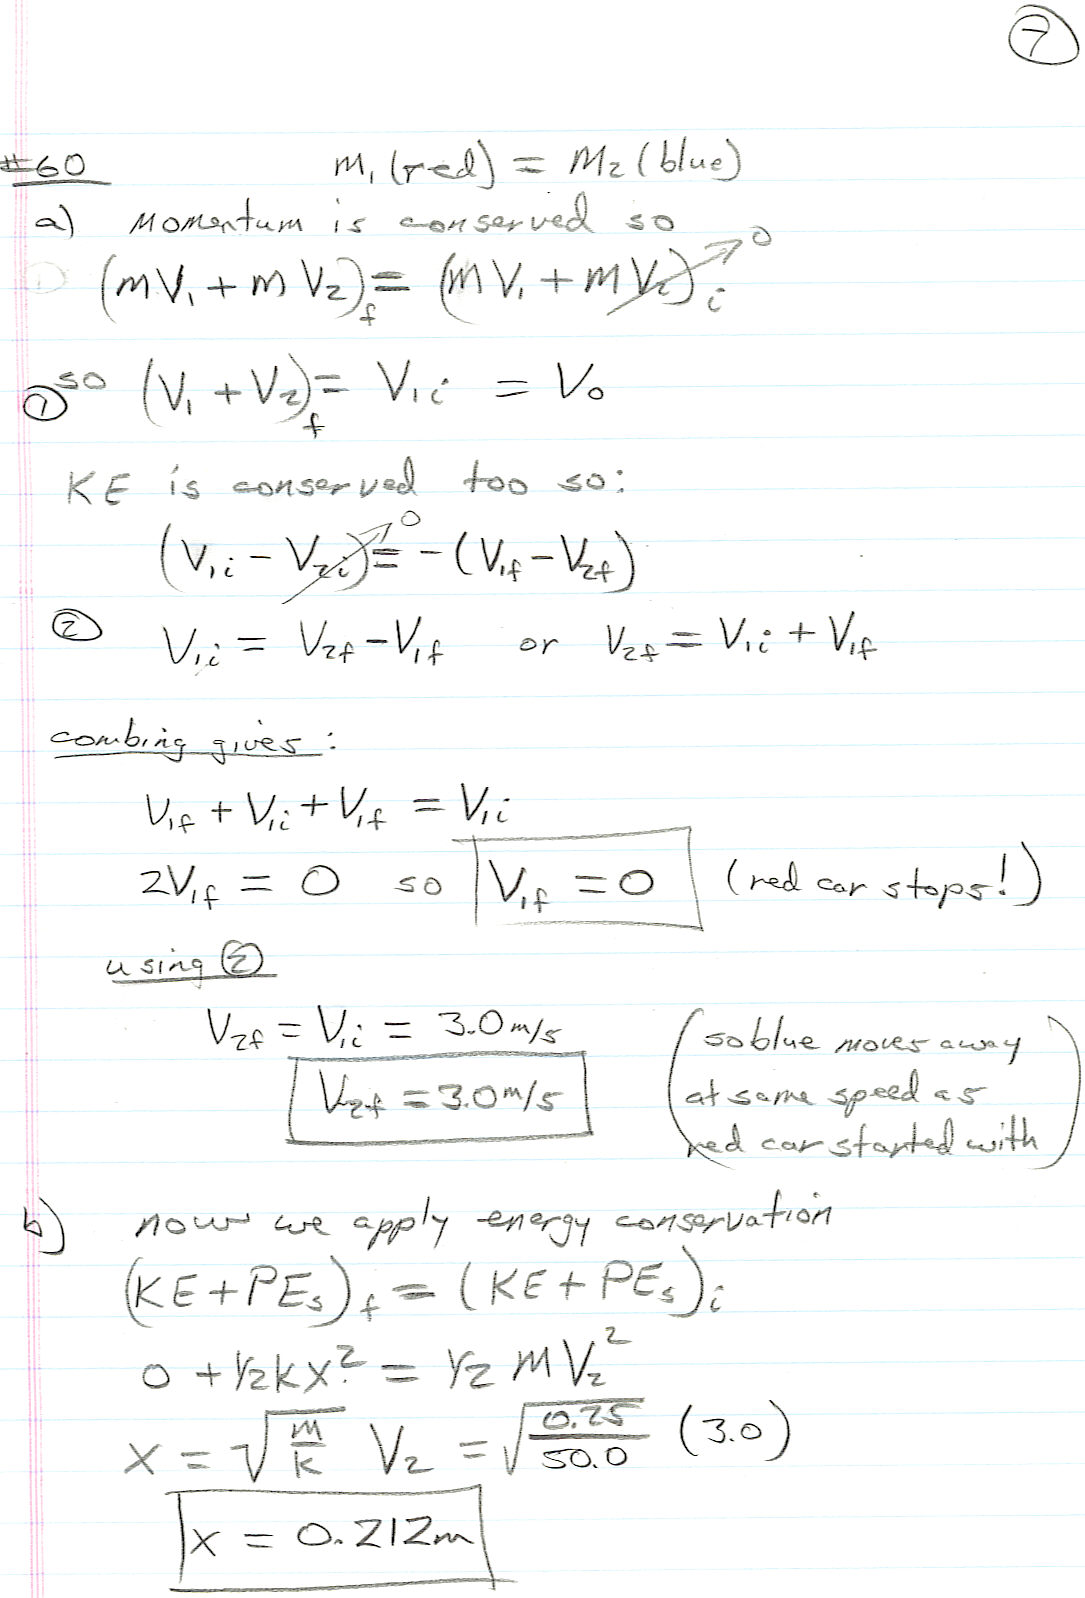 7
#60
m₁ (red) = m₂ (blue)
a) Momentum is conserved so
(mV₁ + mV₂)f = (mV₁ + mV₂)i → 0
① so (V₁ + V₂)f = V₁i = V₀
KE is conserved too so:
(V₁i - V₂i) → 0 = -(V₁f - V₂f)
② V₁i = V₂f - V₁f or V₂f = V₁i + V₁f
combing gives:
V₁f + V₁i + V₁f = V₁i
2V₁f = 0 so V₁f = 0 (red car stops!)
using ②
V₂f = V₁i = 3.0 m/s
V₂f = 3.0 m/s
(so blue moves away
at same speed as
red car started with)
b) now we apply energy conservation
(KE + PEs)f = (KE + PEs)i
0 + ½kx² = ½ mV₂²
x = √(m/k) V₂ = √(0.25/50.0) (3.0)
x = 0.212m